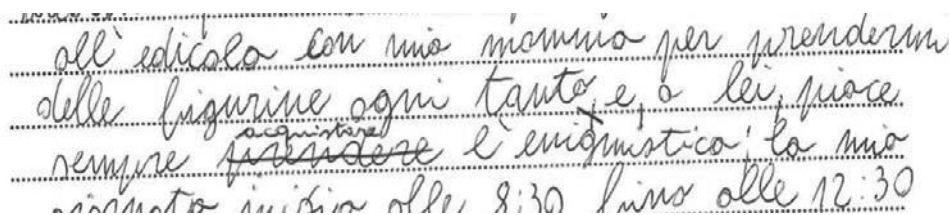 all'edicola con mia mamma per prendermi
delle figurine ogni tanto, e, a lei, piace
sempre acquistare prendere l'enigmistica, la mia
giornata inizia alle 8:30 fino alle 12:30